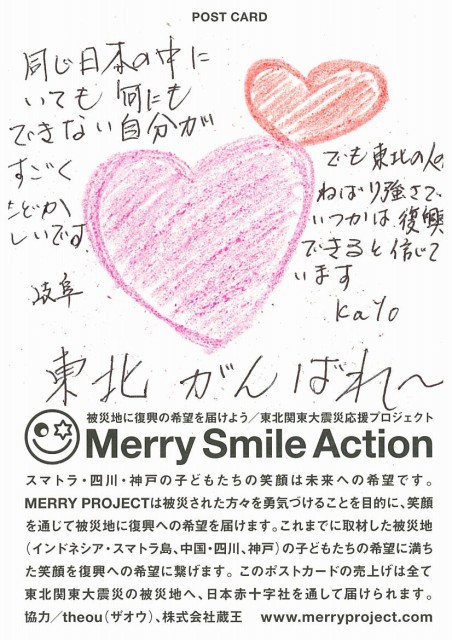 POST CARD
同じ日本の中に
いても 何にも
できない自分が
すごく
もどかしいです
岐阜
でも東北の人の
ねばり強さで、
いつかは、復興
できると信じて
います
Kayo
東北 がんばれ〜
被災地に復興の希望を届けよう／東北関東大震災応援プロジェクト
Merry Smile Action
スマトラ・四川・神戸の子どもたちの笑顔は未来への希望です。
MERRY PROJECTは被災された方々を勇気づけることを目的に、笑顔
を通じて被災地に復興への希望を届けます。これまでに取材した被災地
（インドネシア・スマトラ島、中国・四川、神戸）の子どもたちの希望に満ち
た笑顔を復興への希望に繋げます。このポストカードの売上げは全て
東北関東大震災の被災地へ、日本赤十字社を通して届けられます。
協力／theou（ザオウ）、株式会社蔵王 www.merryproject.com